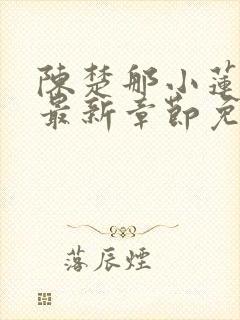 陳楚那小蓮
最新章節免
落辰煙